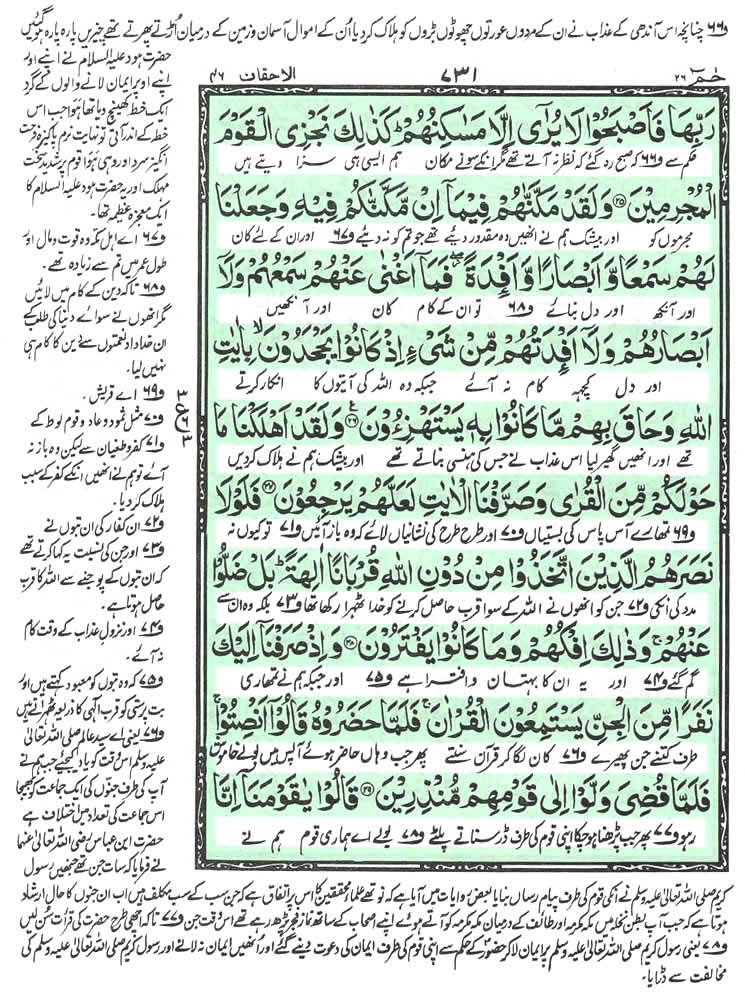 و۶۶ چنانچہ اس آندھی کے عذاب نے ان کے مردوں عورتوں چھوٹوں بڑوں کو ہلاک کر دیا اُن کے اموال آسمان و زمین کے درمیان اُڑتے پھرتے تھے چیزیں پارہ پارہ ہو گئیں
حضرت ہود علیہ السلام نے اپنے اور
اپنے اوپر ایمان لانے والوں کے گرد
ایک خط کھینچ دیا تھا ہوا جب اس
خط کے اندر آتی تو نہایت نرم پاکیزہ فرحت
انگیز سرد اور وہی ہوا قوم پر شدید سخت
مہلک اور یہ حضرت ہود علیہ السلام کا
ایک معجزہ عظیمہ تھا۔
و۶۷ اے اہل مکہ وہ قوت و مال اور
طول عمر میں تم سے زیادہ تھے۔
و۶۸ تاکہ دین کے کام میں لائیں
مگر انھوں نے سوائے دنیا کی طلب کے
ان خداداد نعمتوں سے دین کا کام ہی
نہیں لیا۔
و۶۹ اے قریش۔
و۷۰ مثل ثمود و عاد و قوم لوط کے
و۷۱ کفر و طغیان سے لیکن وہ باز نہ
آئے تو ہم نے انھیں انکے کفر کے سبب
ہلاک کر دیا۔
و۷۲ ان کفار کی ان بتوں نے
و۷۳ اور جن کی نسبت یہ کہا کرتے تھے
کہ ان بتوں کے پوجنے سے اللہ کا قرب
حاصل ہوتا ہے۔
و۷۴ اور نزول عذاب کے وقت کام
نہ آئے۔
و۷۵ کہ وہ بتوں کو معبود کہتے ہیں اور
بت پرستی کو قرب الٰہی کا ذریعہ ٹھہراتے ہیں
و۷۶ یعنی اے سید عالم صلی اللہ تعالیٰ
علیہ وسلم اس وقت کو یاد کیجیے جب ہم نے
آپ کی طرف جنوں کی ایک جماعت کو بھیجا
اس جماعت کی تعداد میں اختلاف ہے
حضرت ابن عباس رضی اللہ تعالیٰ عنہما
نے فرمایا کہ سات جن تھے جنھیں رسول
حٰمٓ ۲۶
۷۳۱
الاحقاف ۴۶
رَبِّهَا فَاَصْبَحُوْا لَا يُرٰٓى اِلَّا مَسٰكِنُهُمْ ؕ كَذٰلِكَ نَجْزِى الْقَوْمَ
حکم سے و۶۶ کہ صبح رہ گئے کہ نظر نہ آتے تھے مگر انکے سونے مکان ہم ایسی ہی سزا دیتے ہیں
الْمُجْرِمِيْنَ ۲۵ وَلَقَدْ مَكَّنّٰهُمْ فِيْمَآ اِنْ مَّكَّنّٰكُمْ فِيْهِ وَجَعَلْنَا
مجرموں کو اور بیشک ہم نے انھیں وہ مقدور دیئے تھے جو تم کو نہ دیئے و۶۷ اور ان کے لئے کان
لَهُمْ سَمْعًا وَّ اَبْصَارًا وَّ اَفْـِٕدَةً ۖ فَمَآ اَغْنٰى عَنْهُمْ سَمْعُهُمْ وَلَآ
اور آنکھ اور دل بنائے و۶۸ تو ان کے کام کان اور آنکھیں
اَبْصَارُهُمْ وَلَآ اَفْـِٕدَتُهُمْ مِّنْ شَىْءٍ اِذْ كَانُوْا يَجْحَدُوْنَ ۙ بِاٰيٰتِ
اور دل کچھ کام نہ آئے جبکہ وہ اللہ کی آیتوں کا انکار کرتے
اللّٰهِ وَحَاقَ بِهِمْ مَّا كَانُوْا بِهٖ يَسْتَهْزِءُوْنَ ۲۶ وَلَقَدْ اَهْلَكْنَا مَا
تھے اور انھیں گھیر لیا اس عذاب نے جس کی ہنسی بناتے تھے اور بیشک ہم نے ہلاک کر دیں
حَوْلَكُمْ مِّنَ الْقُرٰى وَصَرَّفْنَا الْاٰيٰتِ لَعَلَّهُمْ يَرْجِعُوْنَ ۲۷ فَلَوْلَا
و۶۹ تمھارے آس پاس کی بستیاں و۷۰ اور طرح طرح کی نشانیاں لائے کہ وہ باز آئیں و۷۱ تو کیوں نہ
نَصَرَهُمُ الَّذِيْنَ اتَّخَذُوْا مِنْ دُوْنِ اللّٰهِ قُرْبَانًا اٰلِهَةً ؕ بَلْ ضَلُّوْا
مدد کی انکی و۷۲ جن کو انھوں نے اللہ کے سوا قرب حاصل کرنے کو خدا ٹھہرا رکھا تھا و۷۳ بلکہ وہ ان سے
عَنْهُمْ ۚ وَذٰلِكَ اِفْكُهُمْ وَمَا كَانُوْا يَفْتَرُوْنَ ۲۸ وَاِذْ صَرَفْنَآ اِلَيْكَ
گم گئے و۷۴ اور یہ ان کا بہتان و افترا ہے و۷۵ اور جبکہ ہم نے تمھاری
نَفَرًا مِّنَ الْجِنِّ يَسْتَمِعُوْنَ الْقُرْاٰنَ ۚ فَلَمَّا حَضَرُوْهُ قَالُوْٓا اَنْصِتُوْا ۚ
طرف کتنے جن پھیرے و۷۶ کان لگا کر قرآن سنتے پھر جب وہاں حاضر ہوئے آپس میں بولے خاموش
فَلَمَّا قُضِىَ وَلَّوْا اِلٰى قَوْمِهِمْ مُّنْذِرِيْنَ ۲۹ قَالُوْا يٰقَوْمَنَآ اِنَّا
رہو و۷۷ پھر جب پڑھنا ہو چکا اپنی قوم کی طرف ڈر سناتے پلٹے و۷۸ بولے اے ہماری قوم ہم نے
کریم صلی اللہ تعالیٰ علیہ وسلم نے انکی قوم کی طرف پیام رساں بنایا بعض روایات میں آیا ہے کہ نو تھے علمائے محققین کا اس پر اتفاق ہے کہ جن سب کے سب مکلف ہیں اب ان جنوں کا حال ارشاد
ہوتا ہے کہ جب آپ بطن نخلہ میں مکہ مکرمہ اور طائف کے درمیان مکہ مکرمہ کو آتے ہوئے اپنے اصحاب کے ساتھ نماز فجر پڑھ رہے تھے اس وقت جن و۷۷ تاکہ اچھی طرح حضرت کی قرأت سُن لیں
و۷۸ یعنی رسول کریم صلی اللہ تعالیٰ علیہ وسلم پر ایمان لا کر حضور کے حکم سے اپنی قوم کی طرف ایمان کی دعوت دینے گئے اور انھیں ایمان نہ لانے اور رسول کریم صلی اللہ تعالیٰ علیہ وسلم کی
مخالفت سے ڈرایا۔